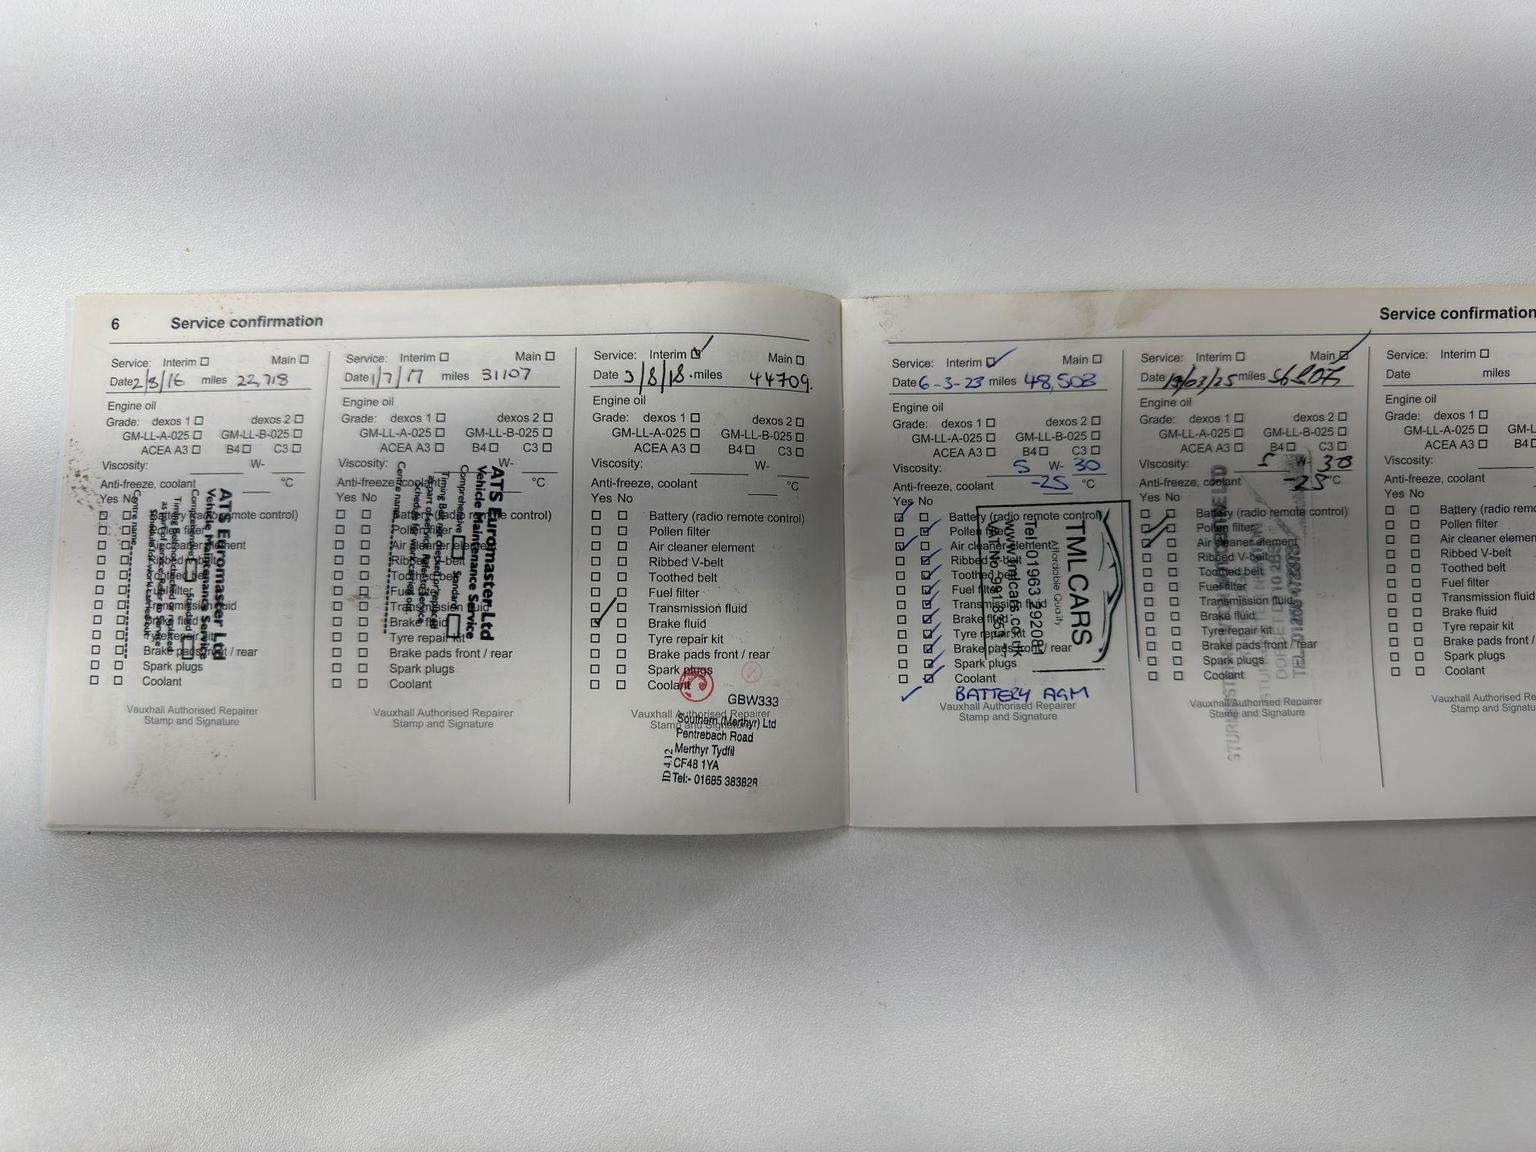 6 Service confirmation
Service: Interim Main
Date 2/8/16 miles 22,718
Engine oil
Grade: dexos 1 dexos 2
GM-LL-A-025 GM-LL-B-025
ACEA A3 B4 C3
Viscosity: W-
Anti-freeze, coolant °C
Yes No
Battery (radio remote control)
Spark plugs
Coolant
Vauxhall Authorised Repairer
Stamp and Signature
ATS Euromaster Ltd
Vehicle Maintenance Service
Comprehensive Standard
Centre name
Service: Interim Main
Date 1/7/17 miles 31107
Engine oil
Grade: dexos 1 dexos 2
GM-LL-A-025 GM-LL-B-025
ACEA A3 B4 C3
Viscosity: W-
Anti-freeze, coolant °C
Yes No
Battery (radio remote control)
Pollen filter
Air cleaner element
Ribbed V-belt
Toothed belt
Fuel filter
Transmission fluid
Brake fluid
Tyre repair kit
Brake pads front / rear
Spark plugs
Coolant
Vauxhall Authorised Repairer
Stamp and Signature
ATS Euromaster Ltd
Vehicle Maintenance Service
Comprehensive Standard
Centre name
Service: Interim Main
Date 3/8/18 miles 44709
Engine oil
Grade: dexos 1 dexos 2
GM-LL-A-025 GM-LL-B-025
ACEA A3 B4 C3
Viscosity: W-
Anti-freeze, coolant °C
Yes No
Battery (radio remote control)
Pollen filter
Air cleaner element
Ribbed V-belt
Toothed belt
Fuel filter
Transmission fluid
Brake fluid
Tyre repair kit
Brake pads front / rear
Spark plugs
Coolant
GBW333
Vauxhall Authorised Repairer
Stamp and Signature
Southern (Merthyr) Ltd
Pentrebach Road
Merthyr Tydfil
CF48 1YA
Tel:- 01685 383828
ID 4.12
Service confirmation
Service: Interim Main
Date 6-3-23 miles 48,503
Engine oil
Grade: dexos 1 dexos 2
GM-LL-A-025 GM-LL-B-025
ACEA A3 B4 C3
Viscosity: 5 W- 30
Anti-freeze, coolant -25 °C
Yes No
Battery (radio remote control)
Pollen filter
Air cleaner element
Ribbed V-belt
Toothed belt
Fuel filter
Transmission fluid
Brake fluid
Tyre repair kit
Brake pads front / rear
Spark plugs
Coolant
BATTERY AGM
Vauxhall Authorised Repairer
Stamp and Signature
TMLCARS
Affordable Quality
Tel: 01963 292081
www.tmlcars.co.uk
Service: Interim Main
Date miles
Engine oil
Grade: dexos 1 dexos 2
GM-LL-A-025 GM-LL-B-025
ACEA A3 B4 C3
Viscosity: 5 W- 30
Anti-freeze, coolant -25 °C
Yes No
Battery (radio remote control)
Pollen filter
Air cleaner element
Ribbed V-belt
Toothed belt
Fuel filter
Transmission fluid
Brake fluid
Tyre repair kit
Brake pads front / rear
Spark plugs
Coolant
Vauxhall Authorised Repairer
Stamp and Signature
Service: Interim
Date miles
Engine oil
Grade: dexos 1
GM-LL-A-025 GM-L
ACEA A3 B4
Viscosity:
Anti-freeze, coolant
Yes No
Battery (radio remote
Pollen filter
Air cleaner elemen
Ribbed V-belt
Toothed belt
Fuel filter
Transmission fluid
Brake fluid
Tyre repair kit
Brake pads front /
Spark plugs
Coolant
Vauxhall Authorised R
Stamp and Signat